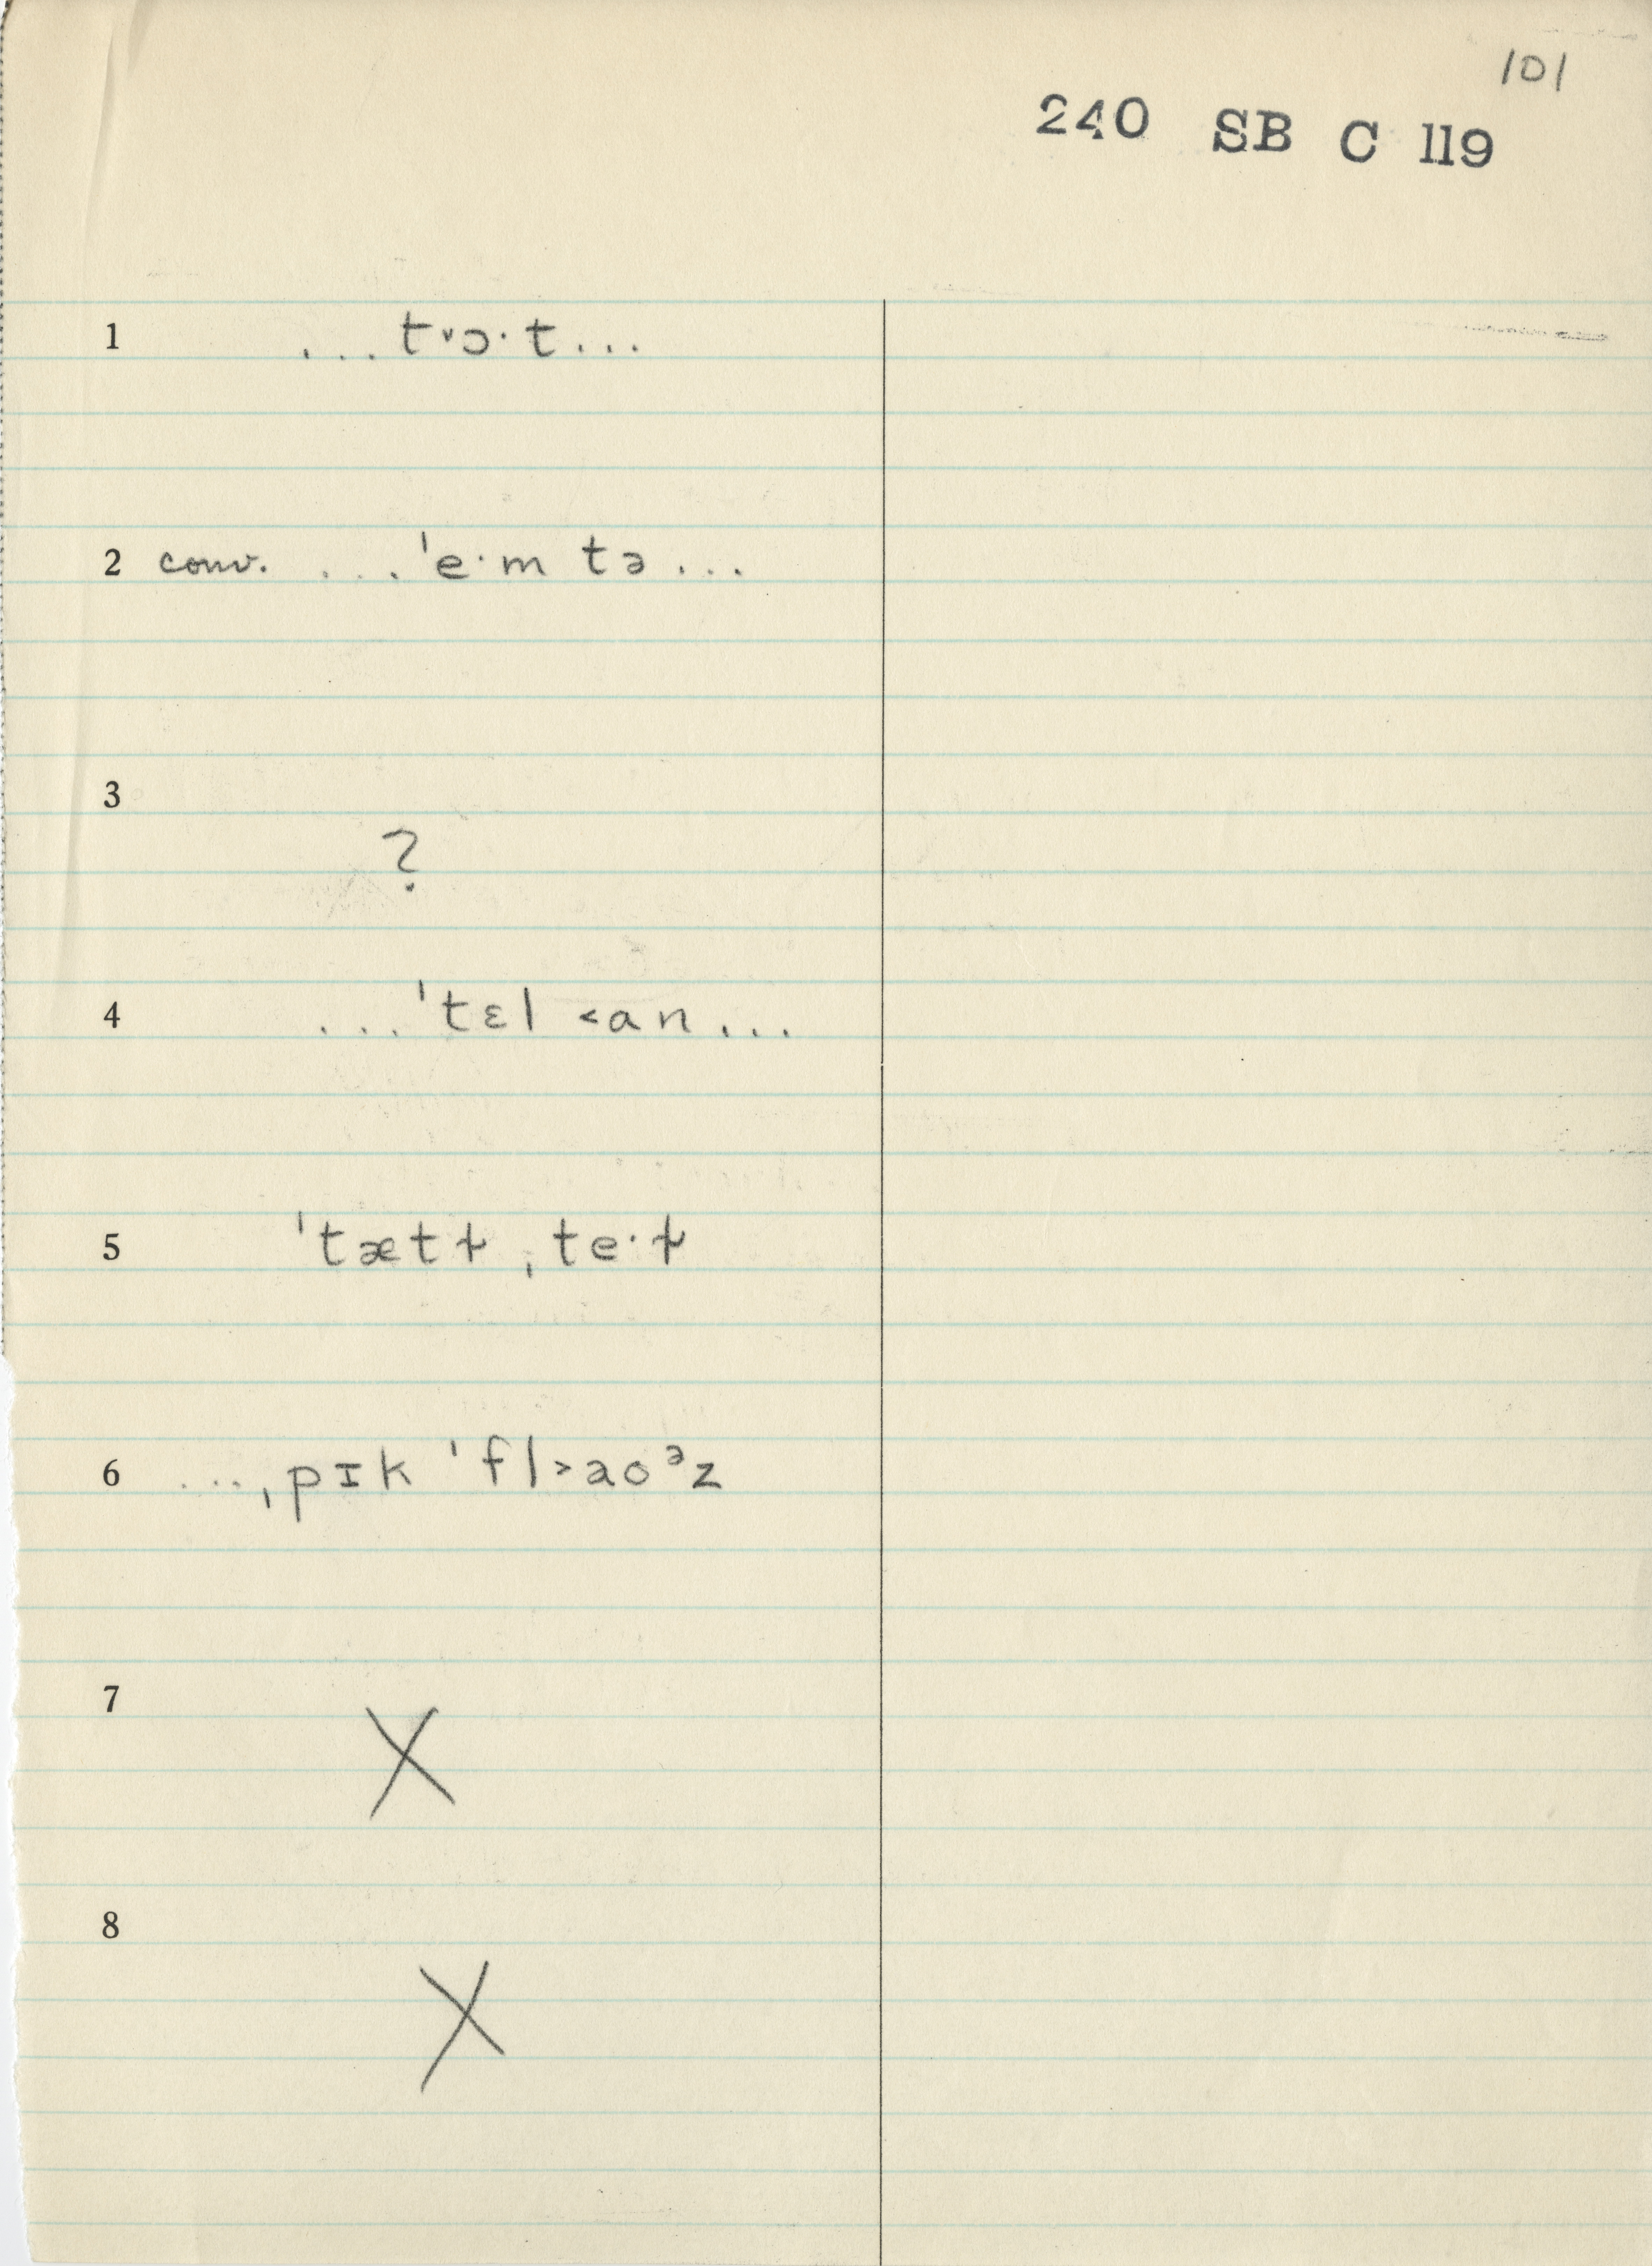 101
240 SB C 119
1 ...t˅ɔ·t...
2 conv. ...ˈe·m tə...
3
?
4 ...ˈtɛl ˂an...
5 ˈtætɫ ˌte·ɫ
6 ...ˌpɪk ˈfl˃aoᵊz
7
X
8
X